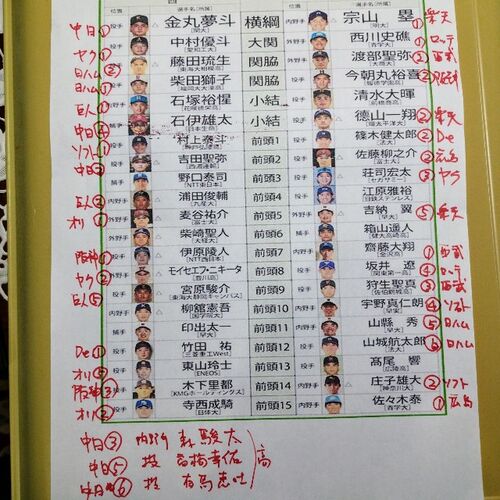 位置 選手名[所属] 四 位置 選手名[所属]
中日① 投手 金丸夢斗 [関大] 横綱 内野手 宗山 塁 [明大] ① 楽天
ヤク① 投手 中村優斗 [愛知工大] 大関 外野手 西川史礁 [青学大] ① ロッテ
日ハム② 投手 藤田琉生 [東海大相模高] 関脇 外野手 渡部聖弥 [大商大] ② 西武
日ハム① 投手 柴田獅子 [福岡大大濠高] 関脇 投手 今朝丸裕喜 [報徳学園高] ② 阪神
巨人① 内野手 石塚裕惺 [花咲徳栄高] 小結 投手 清水大暉 [前橋商高]
中日④ 捕手 石伊雄太 [日本生命] 小結 投手 徳山一翔 [環太平洋大] ② 楽天
ソフト① 投手 村上泰斗 [神戸弘陵高] 前頭1 投手 篠木健太郎 [法大] ② De
中日② 投手 吉田聖弥 [西濃運輸] 前頭2 投手 佐藤柳之介 [富士大] ② 広島
投手 野口泰司 [NTT東日本] 前頭3 投手 荘司宏太 [セガサミー] ③ ヤク
巨人② 内野手 浦田俊輔 [九産大] 前頭4 投手 江原雅裕 [日鉄ステンレス]
オリ① 外野手 麦谷祐介 [富士大] 前頭5 外野手 吉納 翼 [早大] ⑤ 楽天
外野手 柴崎聖人 [大経大] 前頭6 捕手 箱山遥人 [健大高崎高]
阪神① 投手 伊原陵人 [NTT西日本] 前頭7 内野手 齋藤大翔 [金沢高] ① 西武
ヤク② 外野手 モイセエフ・ニキータ [豊川高] 前頭8 投手 坂井 遼 [関東第一高] ④ ロッテ
巨人⑤ 内野手 宮原駿介 [東海大静岡キャンパス] 前頭9 投手 狩生聖真 [佐伯鶴城高] ③ 西武
内野手 柳舘憲吾 [国学院大] 前頭10 内野手 宇野真仁朗 [早実] ④ ソフト
捕手 印出太一 [早大] 前頭11 内野手 山縣 秀 [早大] ⑤ 日ハム
De① 投手 竹田 祐 [三菱重工West] 前頭12 投手 山城航太郎 [法大] ⑥ 日ハム
オリ⑤ 投手 東山玲士 [ENEOS] 前頭13 内野手 髙尾 響 [広陵高]
阪神③ 投手 木下里都 [KMGホールディングス] 前頭14 内野手 庄子雄大 [神奈川大] ② ソフト
オリ② 投手 寺西成騎 [日体大] 前頭15 内野手 佐々木泰 [青学大] ① 広島
中日③ 内野手 森 駿太
中日⑤ 投 高橋幸佑 高
中日⑥ 投 有馬恵叶